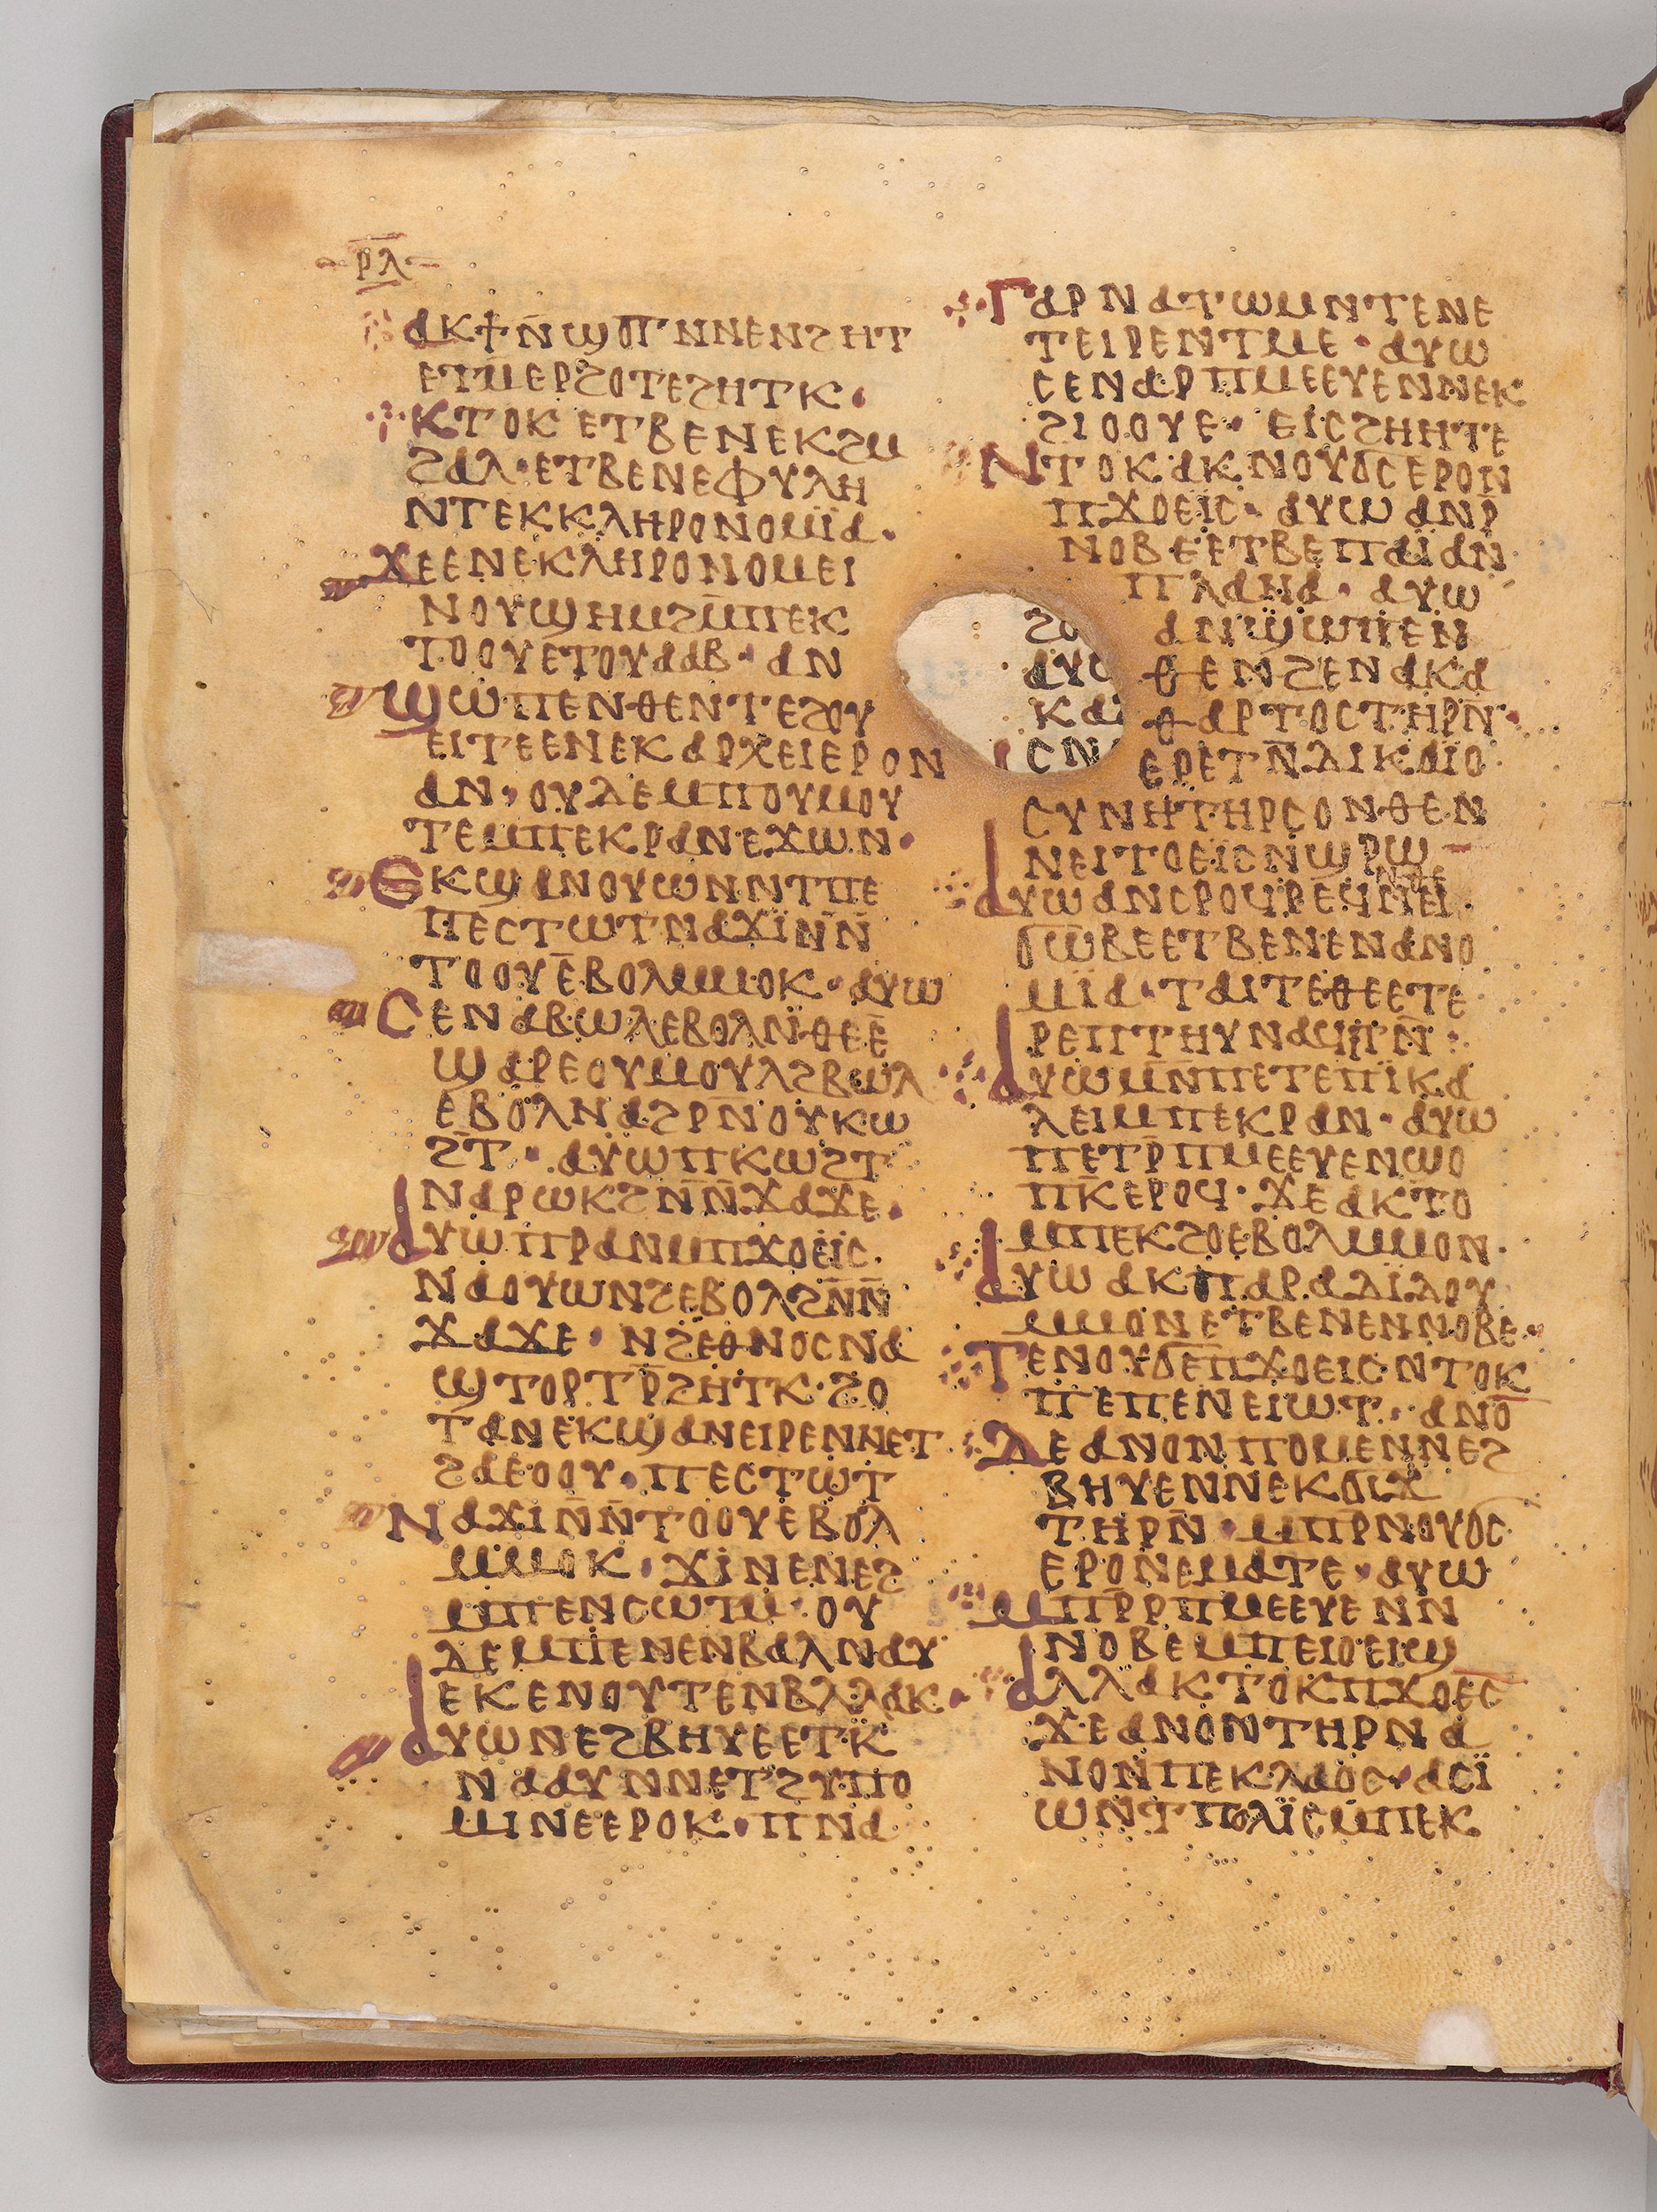 ⲣ̅ⲗ̅
ⲁⲕϯⲛ̄ϣⲟⲡⲛⲛⲉⲛϩⲏⲧ
ⲉⲧⲙ̄ⲉⲣϩⲟⲧⲉϩⲏⲧⲕ·
ⲕⲧⲟⲕⲉⲧⲃⲉⲛⲉⲕϩⲙ
ϩⲁⲗ·ⲉⲧⲃⲉⲛⲉⲫⲩⲗⲏ
ⲛⲧⲉⲕⲕⲗⲏⲣⲟⲛⲟⲙⲓⲁ·
ϫⲉⲉⲛⲉⲕⲗⲏⲣⲟⲛⲟⲙⲉⲓ
ⲛⲟⲩϣⲏⲙϩⲙ̄ⲡⲉⲕ
ⲧⲟⲟⲩⲉⲧⲟⲩⲁⲁⲃ·ⲁⲛ
ϣⲱⲡⲉⲛⲑⲉⲛⲧⲉϩⲟⲩ
ⲉⲓⲧⲉⲉⲛⲉⲕⲁⲣⲭⲉⲓⲉⲣⲟⲛ
ⲁⲛ·ⲟⲩⲇⲉⲙⲡⲟⲩⲙⲟⲩ
ⲧⲉⲙⲡⲉⲕⲣⲁⲛⲉϫⲱⲛ·
ⲉⲕϣⲁⲛⲟⲩⲱⲛⲛⲧⲡⲉ
ⲡⲉⲥⲧⲱⲧⲛⲁϫⲓⲛ̄ⲛ̄
ⲧⲟⲟⲩⲉ̄ⲃⲟⲗⲙⲙⲟⲕ·ⲁⲩⲱ
ⲥⲉⲛⲁⲃⲱⲗⲉⲃⲟⲗⲛ̄ⲑⲉⲉ̄
ϣⲁⲣⲉⲟⲩⲙⲟⲩⲗϩⲃⲱⲗ
ⲉⲃⲟⲗⲛⲁϩⲣⲛ̄ⲟⲩⲕⲱ
ϩⲧ̄·ⲁⲩⲱⲡⲕⲱϩⲧ
ⲛⲁⲣⲱⲕϩⲛ̄ⲛ̄ϫⲁϫⲉ·
ⲁⲩⲱⲡⲣⲁⲛⲙⲡϫⲟⲉⲓⲥ·
ⲛⲁⲟⲩⲱⲛϩⲉⲃⲟⲗϩⲛ̄ⲛ̄
ϫⲁϫⲉ·ⲛϩⲉⲑⲛⲟⲥⲛⲁ
ϣⲧⲟⲣⲧⲣ̄ϩⲏⲧⲕ·ϩⲟ
ⲧⲁⲛⲉⲕϣⲁⲛⲉⲓⲣⲉⲛⲛⲉⲧ
ϩⲁⲉⲟⲟⲩ·ⲡⲉⲥⲧⲱⲧ
ⲛⲁϫⲓⲛ̄ⲛ̄ⲧⲟⲟⲩⲉⲃⲟⲗ
ⲙⲙⲟⲕ·ϫⲓⲛⲉⲛⲉϩ
ⲙⲡⲉⲛⲥⲱⲧⲙ̄·ⲟⲩ
ⲇⲉⲙⲡⲉⲛⲉⲛⲃⲁⲗⲛⲁⲩ
ⲉⲕⲉⲛⲟⲩⲧⲉⲛⲃⲗⲗⲁⲕ·
ⲁⲩⲱⲛⲉϩⲃⲏⲩⲉⲉⲧⲕ̄
ⲛⲁⲁⲩⲛⲛⲉⲧϩⲩⲡⲟ
ⲙⲓⲛⲉⲉⲣⲟⲕ·ⲡⲛⲁ
ⲅⲁⲣⲛⲁⲧⲱⲙⲛⲧⲉⲛⲉ
ⲧⲉⲓⲣⲉⲛⲧⲙⲉ·ⲁⲩⲱ
ⲥⲉⲛⲁⲣⲡⲙⲉⲉⲩⲉⲛⲛⲉⲕ
ϩⲓⲟⲟⲩⲉ·ⲉⲓⲥϩⲏⲏⲧⲉ
ⲛⲧⲟⲕⲁⲕⲛⲟⲩϭⲥⲉⲣⲟⲛ
ⲡϫⲟⲉⲓⲥ·ⲁⲩⲱⲁⲛⲣ̄
ⲛⲟⲃⲉⲉⲧⲃⲉⲡⲁⲓⲁⲛ
ⲡⲗⲁⲛⲁ·ⲁⲩⲱ
ⲁⲛϣⲱⲡⲉⲛ
ⲑⲉⲛϩⲉⲛⲁⲕⲁ
ⲑⲁⲣⲧⲟⲥⲧⲏⲣⲛ̄·
ⲉⲣⲉⲧⲛ̄ⲇⲓⲕⲁⲓⲟ
ⲥⲩⲛⲏⲧⲏⲣⲥⲟⲛⲑⲉⲛ
ⲛⲉⲓⲧⲟⲉⲓⲥⲛϣⲣϣ
ⲛⲑⲉ
ⲁⲩⲱⲁⲛⲥⲣⲟϥⲣⲉϥⲛⲉⲓ·
ϭⲱⲃⲉⲉⲧⲃⲉⲛⲉⲛⲁⲛⲟ
ⲙⲓⲁ·ⲧⲁⲓⲧⲉⲑⲉⲉⲧⲉ
ⲣⲉⲡⲧⲏⲩⲛⲁϥⲓⲧⲛ̄
ⲁⲩⲱⲙⲛ̄ⲡⲉⲧⲉⲡⲓⲕⲁ
ⲗⲉⲓⲙⲡⲉⲕⲣⲁⲛ·ⲁⲩⲱ
ⲡⲉⲧⲣ̄ⲡⲙⲉⲉⲩⲉⲛϣⲟ
ⲡⲕ̄ⲉⲣⲟϥ·ϫⲉⲁⲕⲧⲟ
ⲙⲡⲉⲕϩⲟⲉⲃⲟⲗⲙⲙⲟⲛ·
ⲁⲩⲱⲁⲕⲡⲁⲣⲁⲇⲓⲇⲟⲩ
ⲙⲙⲟⲛⲉⲧⲃⲉⲛⲉⲛⲛⲟⲃⲉ·
ⲧⲉⲛⲟⲩϭⲉⲡϫⲟⲉⲓⲥⲛⲧⲟⲕ
ⲡⲉⲡⲉⲛⲉⲓⲱⲧ·ⲁⲛⲟ̄
ⲇⲉⲁⲛⲟⲛⲡⲟⲙⲉⲛⲛⲉϩ
ⲃⲏⲩⲉⲛⲛⲉⲕϭⲓϫ
ⲧⲏⲣⲛ̄·ⲙⲡⲣⲛⲟⲩϭⲥ
ⲉⲣⲟⲛⲉⲙⲁⲧⲉ·ⲁⲩⲱ
ⲙⲡⲣ̄ⲣⲡⲙⲉⲉⲩⲉⲛⲛ
ⲛⲟⲃⲉⲙⲡⲉⲓⲟⲉⲓϣ
ⲁⲗⲗⲁⲕⲧⲟⲕⲡϫⲟⲉⲥ
ϫⲉⲁⲛⲟⲛⲧⲏⲣⲛⲁ
ⲛⲟⲛⲡⲉⲕⲗⲁⲟⲥ·ⲁⲥⲓ̈
ⲱⲛⲧⲡⲟⲗⲓ̈ⲥⲙ̄ⲡⲉⲕ